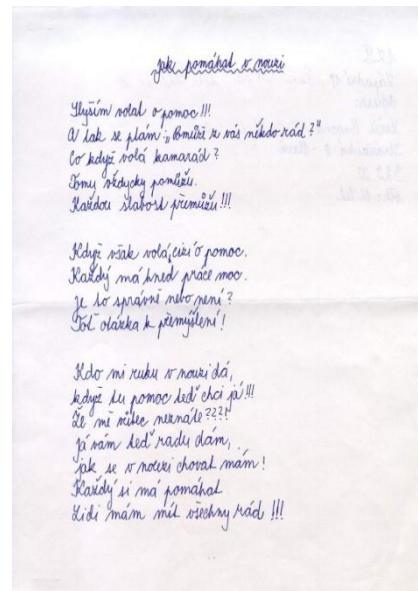 Jak pomáhat v nouzi
Slyším volat o pomoc!!!
A tak se ptám: „Pomůže z vás někdo rád?"
Co když volá kamarád?
Tomu vždycky pomůžu.
Každou slabost přemůžu!!!
Když však volá cizí o pomoc.
Každý má hned práce moc.
Je to správné nebo není?
Toť otázka k přemýšlení!
Kdo mi ruku v nouzi dá,
když tu pomoc teď chci já!!!
Že mě vůbec neznáte???!
Já vám teď radu dám,
jak se v nouzi chovat mám!
Každý si má pomáhat
Lidi mám mít všechny rád!!!